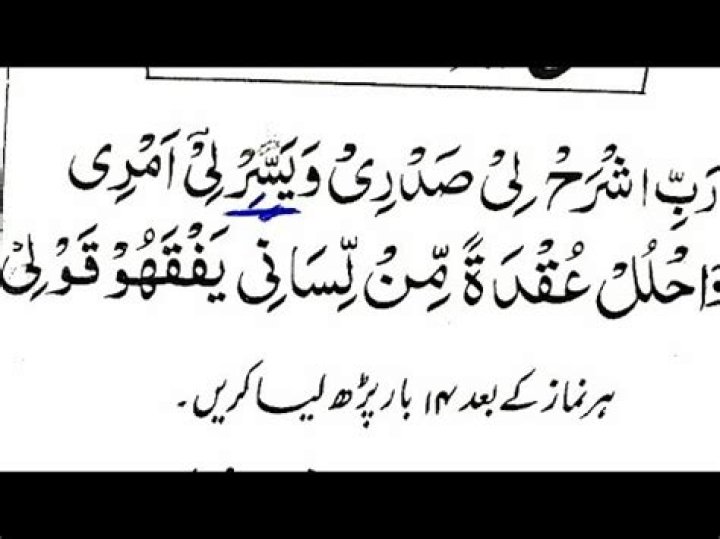 رَبِّ اشْرَحْ لِیْ صَدْرِیْ وَیَسِّرْ لِیْۤ اَمْرِی
وَاحْلُلْ عُقْدَةً مِّنْ لِّسَانِی یَفْقَهُوْ قَوْلِیْ
ہر نماز کے بعد ۱۴ بار پڑھ لیا کریں۔